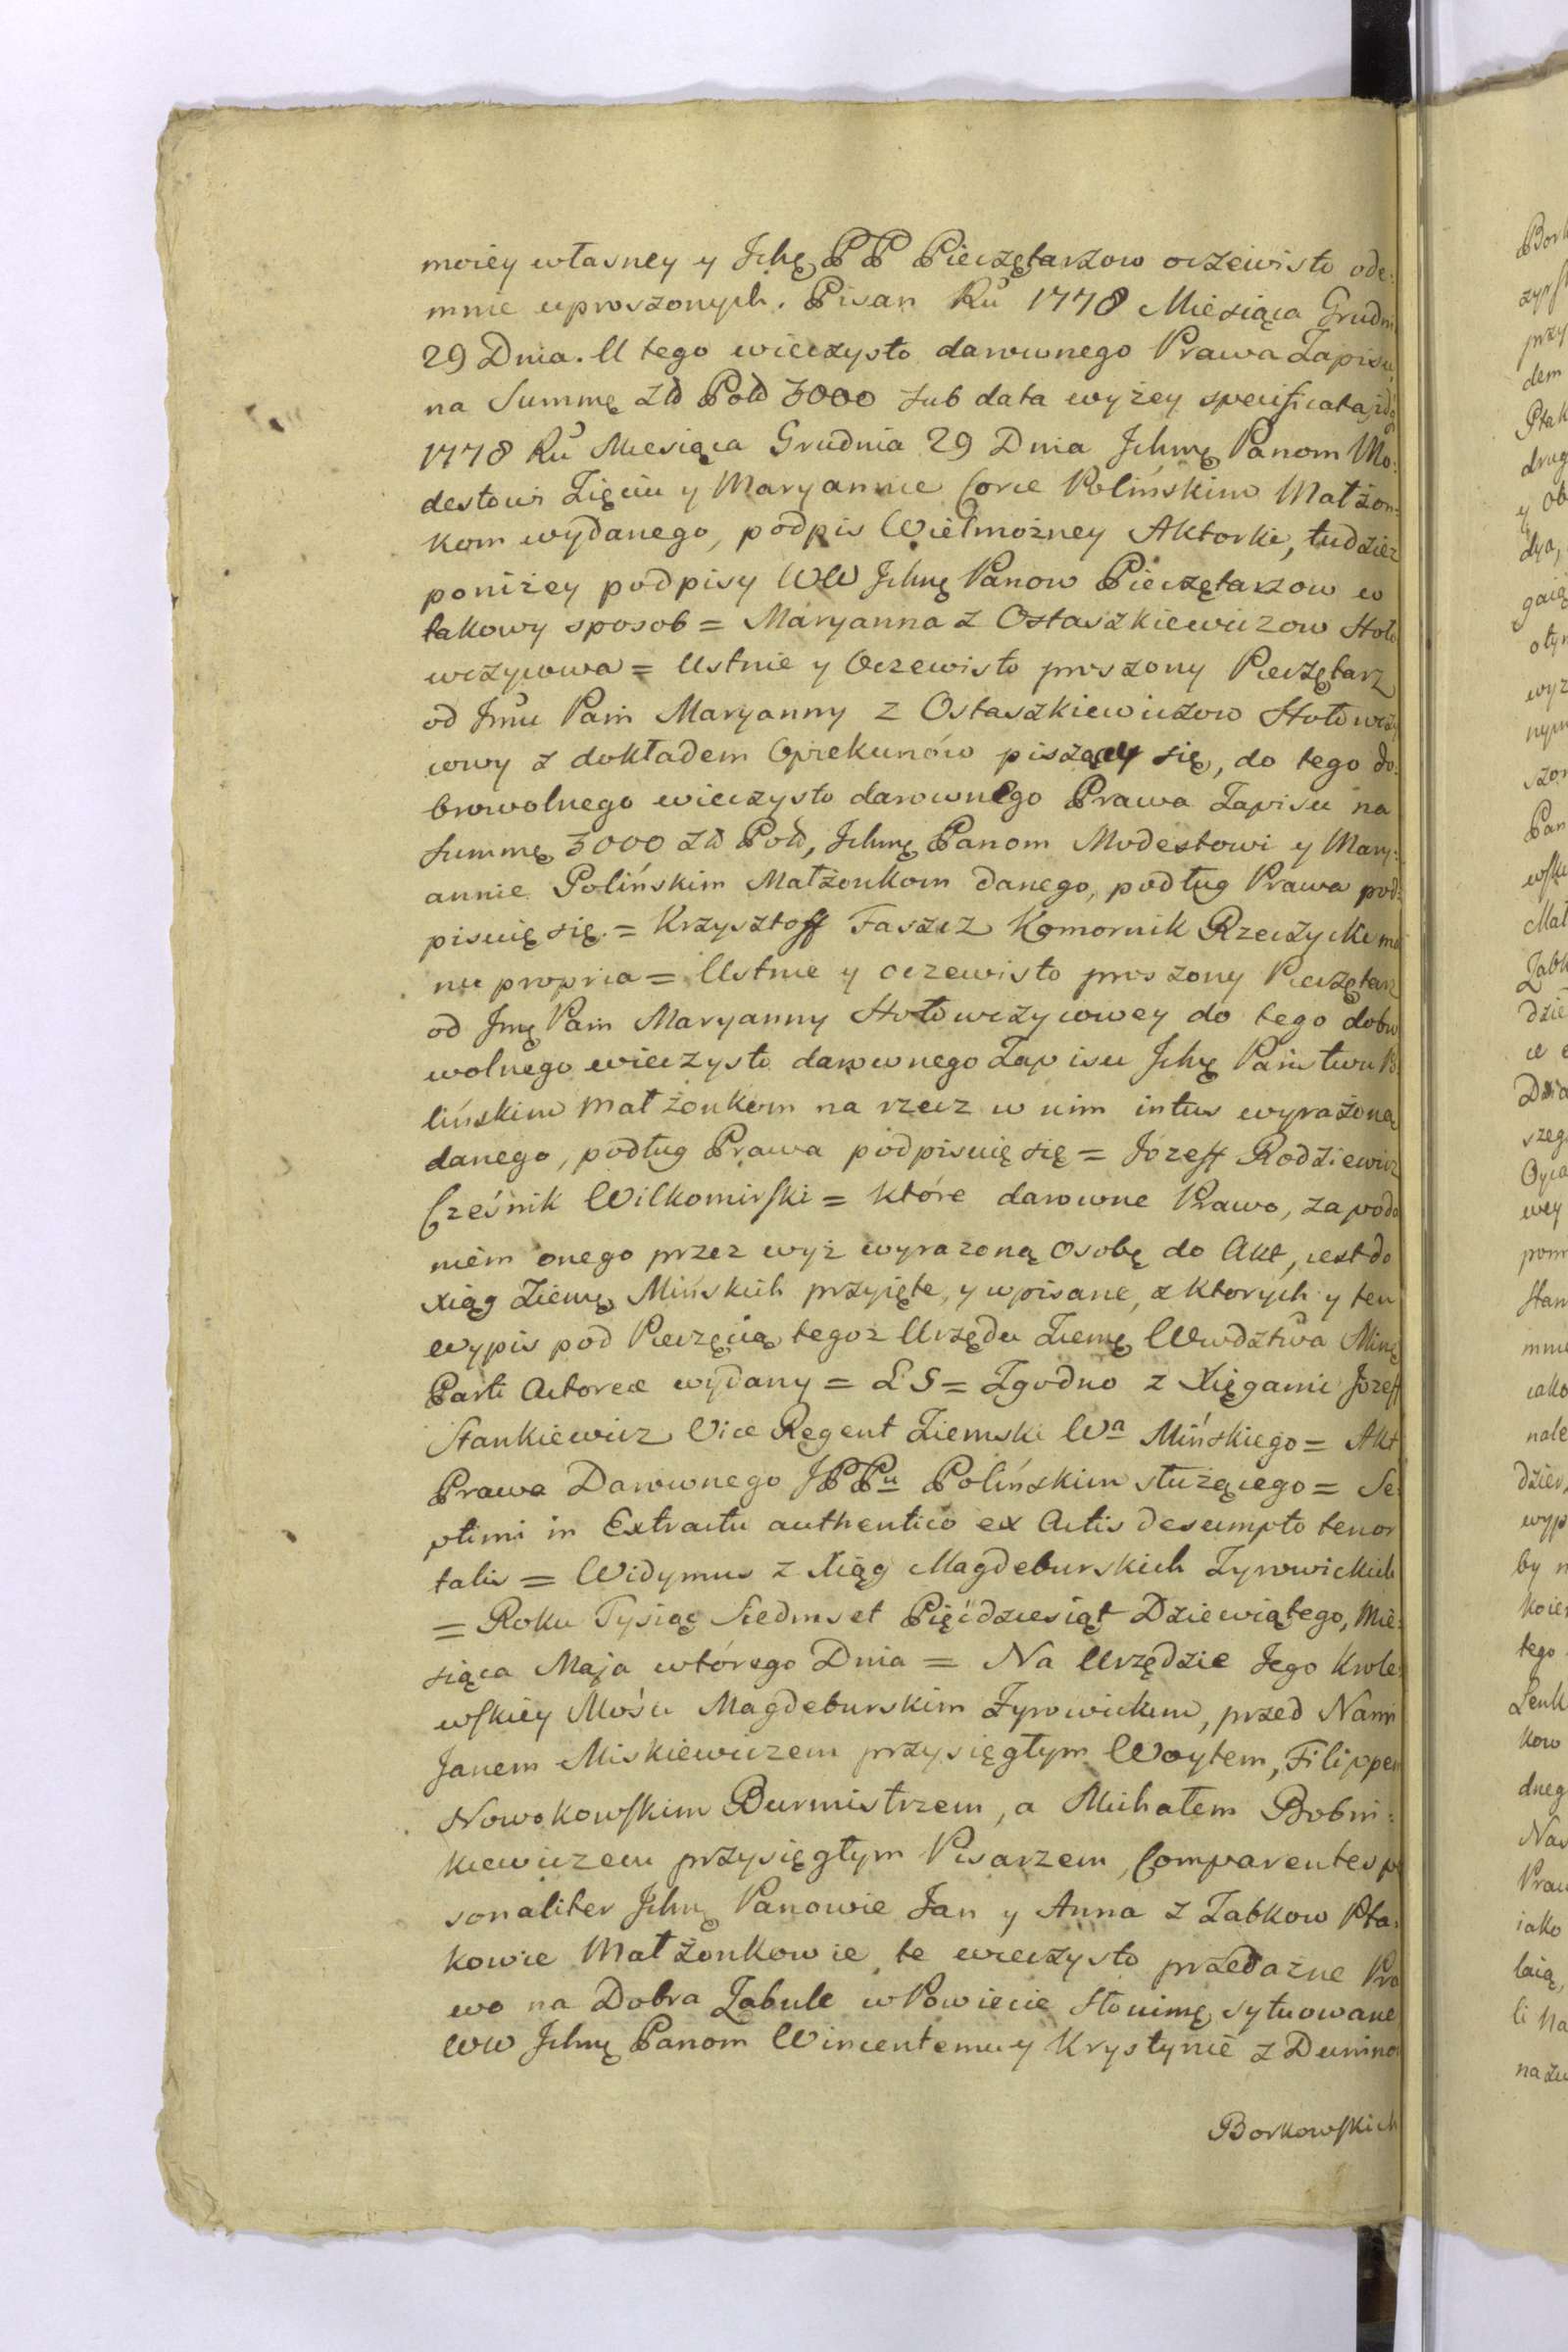 moiey własney y Jchę PP Pieczętarzow oczewisto ode:
mnie uproszonych. Pisan Ru 1778 Miesiąca Grudni
29 Dnia. U tego wieczysto darownego Prawa Zapisu,
na Summę Zł Pol 3000 sub data wyżey specificata
1778 Ru Miesiąca Grudnia 29 Dnia Jchmę Panom Mo:
destowi Zięciu y Maryannie Corce Polińskim Małżon:
kom wydanego, podpis Wielmożney Aktorki, tudziez
poniżey podpisy WW Jchmę Panow Pieczętarzow w
takowy sposob = Maryanna z Ostaszkiewiczow Hoło
wczycowa = Ustnie y Oczewisto proszony Pieczętarz
od Jmu Pani Maryanny z Ostaszkiewiczow Hołowczy
cowy z dokładem Opiekunów piszącey się, do tego do:
browolnego wieczysto darownego Prawa Zapisu na
Summę 3000 Zł Pol, Jchmę Panom Modestowi y Mary:
annie Polińskim Małżonkom danego, podług Prawa pod:
pisuię się. = Krzysztoff Faszcz Komornik Rzeczycki ma
nu propria = Ustnie y oczewisto proszony Pieczętarz
od Jmę Pani Maryanny Hołowczycowey do tego dobro
wolnego wieczysto darownego Zapisu Jchę Państwu Po
lińskim małżonkom na rzecz w nim intus wyrażoną
danego, podług Prawa podpisuię się = Józeff Rodziewicz
Cześnik Wilkomirski = które darowne Prawo, za poda
niem onego przez wyż wyrażoną Osobę do Akt, iest do
Xiąg Ziemę Mińskich przyięte, y wpisane, z ktorych y ten
wypis pod Pieczęcią tegoz Urzędu Ziemę Wwdztwa Minę
Parti Actoreæ wydany = LS = Zgodno z Xięgami Jozeff
Stankiewicz Vice Regent Ziemski Wa Mińskiego = Akt
Prawa Darownego JPPu Polińskim służącego = Se:
ptimi in Extractu authentico ex Actis desumpto tenor
talis = Widymus z Xiąg Magdeburskich Zyrowickich
= Roku Tysiąc Siedmset Pięćdziesiąt Dziewiątego, Mie:
siąca Maja wtórego Dnia = Na Urzędzie Jego Krole:
wskiey Mości Magdeburskim Zyrowickim, przed Nami
Janem Miskiewiczem przysięgłym Woytem, Filippem
Nowokowskim Burmistrzem, a Michałem Bobni:
kiewiczem przysięgłym Pisarzem, Comparentes p
sonaliter Jchmę Panowie Jan y Anna z Zabkow Pta:
kowie Małżonkowie te wieczysto przedażne Pra
wo na Dobra Zabule w Powiecie Słonimę sytuowane
WW Jchmę Panom Wincentemu y Krystynie z Dunino
Borkowskich